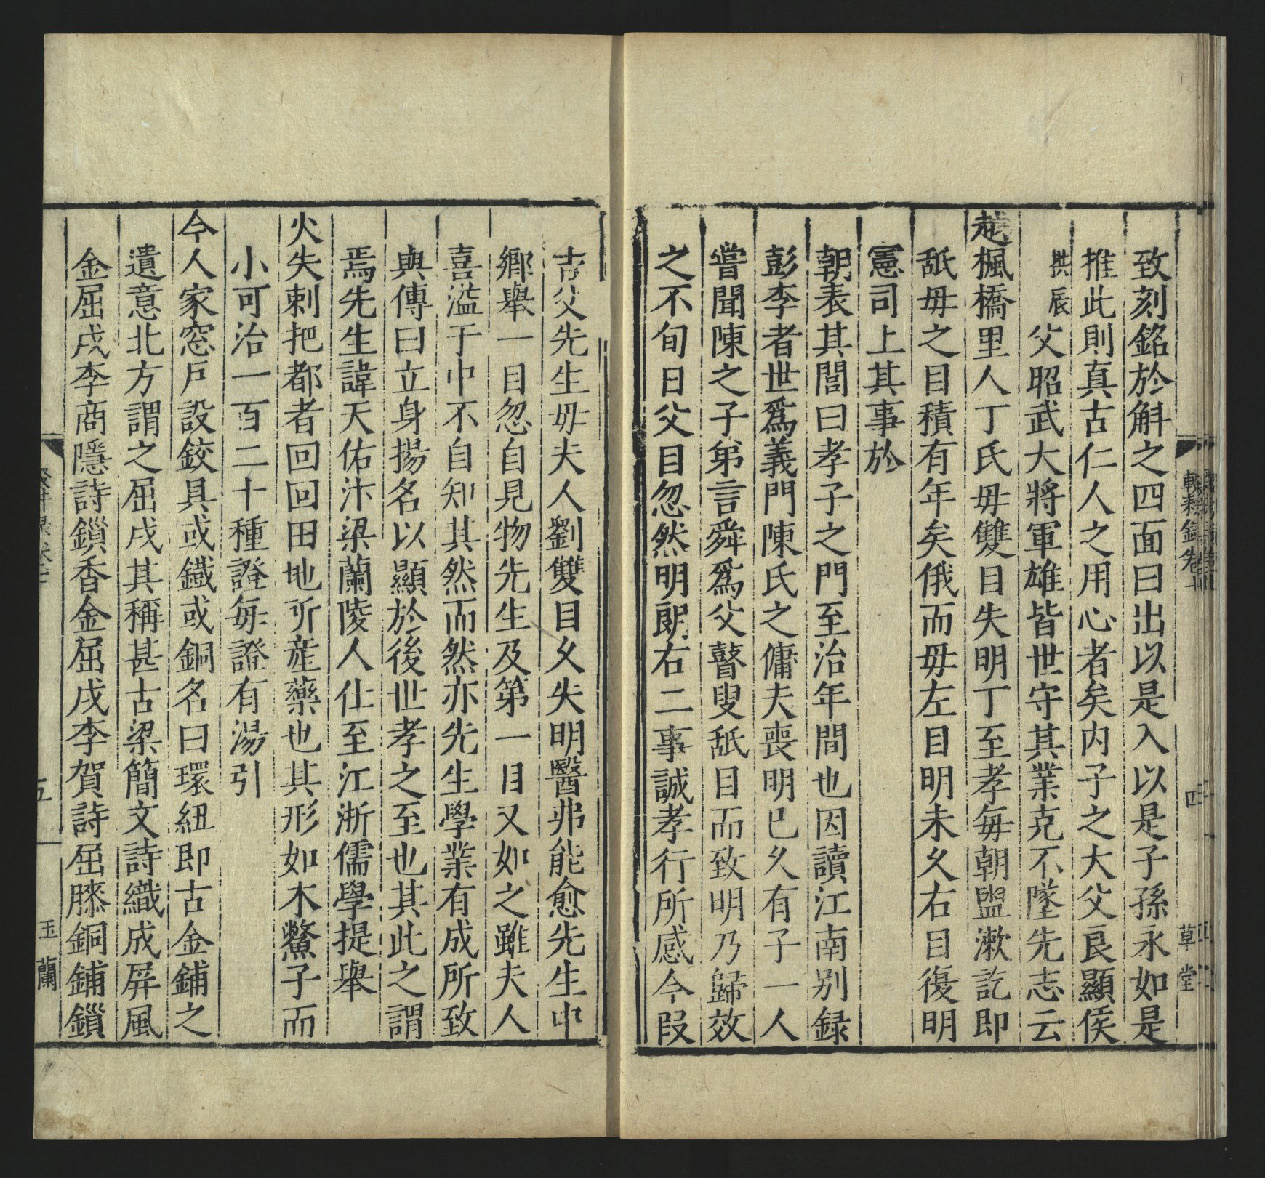 致刻銘於斛之四面曰出以是入以是子孫永如是
推此則真古仁人之用心者矣内子之大父良顯侯
拱辰父昭武大將軍雄皆世守其業克不墜先志云
越楓橋里人丁氏毋雙目失明丁至孝每朝盥漱訖即
舐毋之目積有年矣俄而毋左目明未乆右目復明
憲司上其事於
朝表其閭曰孝子之門至治年間也因讀江南别録
彭李者世爲義門陳氏之傭夫喪明已乆有子一人
嘗聞陳之子弟言舜爲父瞽叟舐目而致明乃歸效
之不旬日父目忽然明朗右二事誠孝行所感今叚
吉父先生毋夫人劉雙目乆失明醫弗能愈先生中
鄉舉一目忽自見物先生及第一目又如之雖夫人
喜溢于中不自知其然而然亦先生學業有成所致
與傳曰立身揚名以顯於後世孝之至也其此之謂
焉先生諱天佑汴梁蘭陵人仕至江浙儒學提舉
火失刺把都者回回田地所産藥也其形如木鱉子而
小可治一百二十種證每證有湯引
今人家窓戸設鉸具或鐵或銅名曰環紐即古金鋪之
遺意北方謂之屈戌其稱甚古梁簡文詩織成屏風
金屈戌李商隱詩鎖香金屈戌李賀詩屈膝銅鋪鎖
輟耕録卷
四
草堂
五
玉蘭